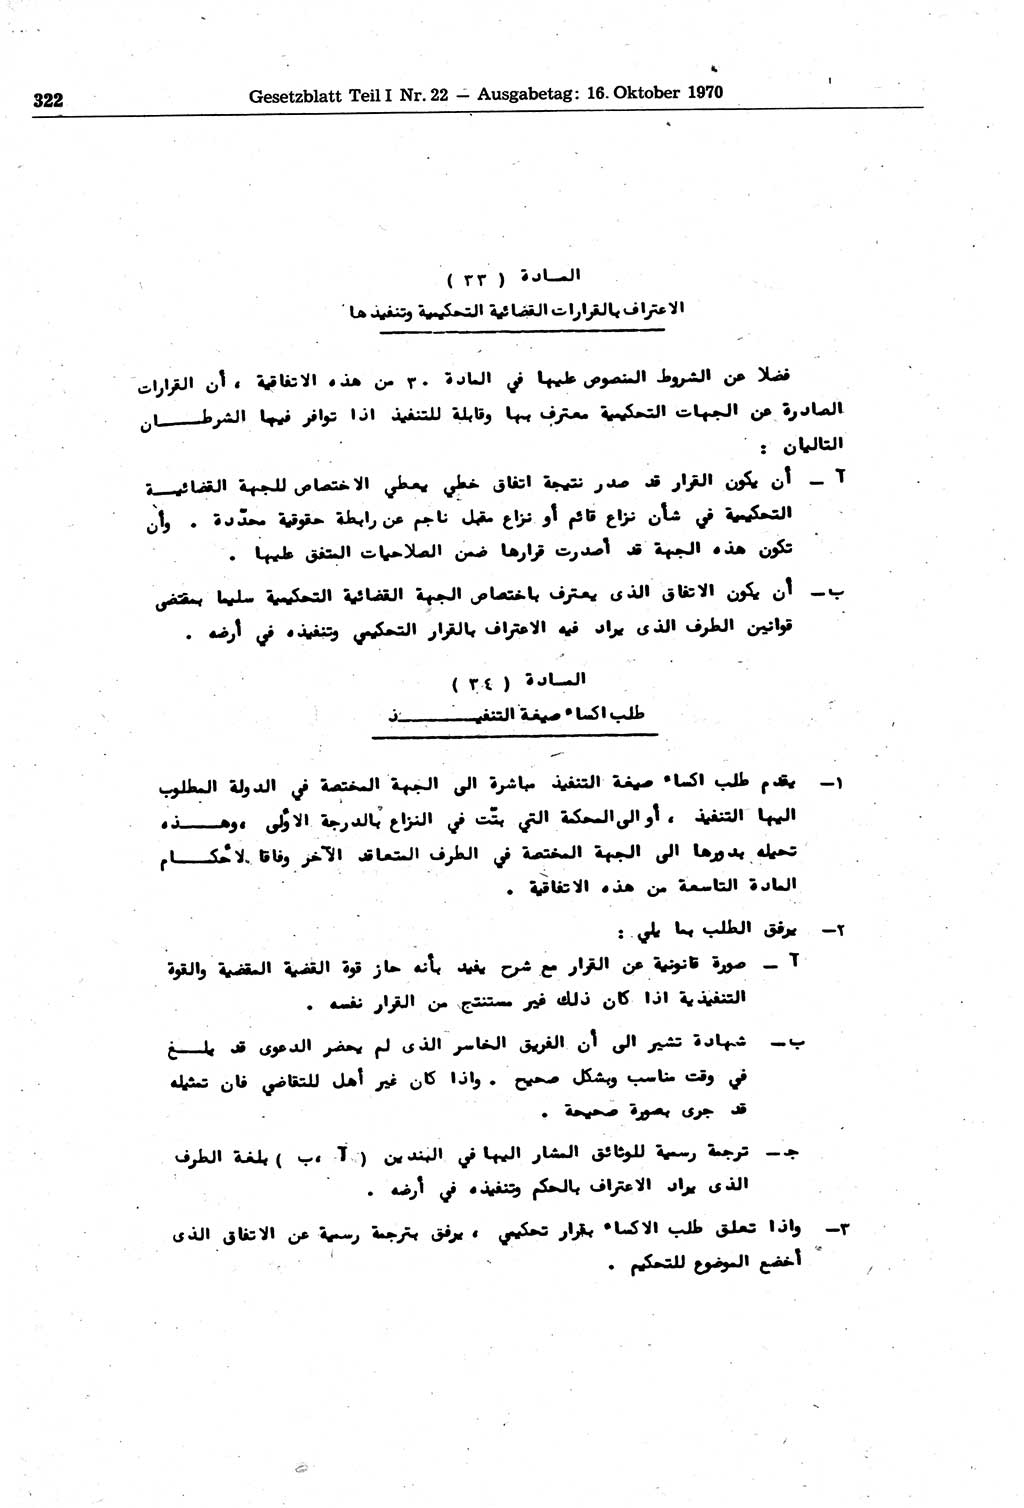 322
Gesetzblatt Teil I Nr. 22 — Ausgabetag: 16. Oktober 1970
المـــادة ( ٣٣ )
الاعتراف بالقرارات القضائية التحكيمية وتنفيذها
فضلا عن الشروط المنصوص عليها في المادة ٣٠ من هذه الاتفاقية ، أن القرارات
الصادرة عن الجهات التحكيمية معترف بها وقابلة للتنفيذ اذا توافر فيها الشرطـــــان
التاليان :
آ ــ أن يكون القرار قد صدر نتيجة اتفاق خطي يعطي الاختصاص للجهة القضائيـــة
التحكيمية في شأن نزاع قائم أو نزاع مقبل ناجم عن رابطة حقوقية محدّدة . وأن
تكون هذه الجهة قد أصدرت قرارها ضمن الصلاحيات المتفق عليها .
ب ــ أن يكون الاتفاق الذى يعترف باختصاص الجهة القضائية التحكيمية سليما بمقتضى
قوانين الطرف الذى يراد فيه الاعتراف بالقرار التحكيمي وتنفيذه في أرضه .
المـــادة ( ٣٤ )
طلب اكساء صيغة التنفيـــــــــذ
١ــ يقدم طلب اكساء صيغة التنفيذ مباشرة الى الجهة المختصة في الدولة المطلوب
اليها التنفيذ ، أو الى المحكمة التي بتّت في النزاع بالدرجة الأولى ،وهـــــذه
تحيله بدورها الى الجهة المختصة في الطرف المتعاقد الآخر وفاقا لأحكـــــام
المادة التاسعة من هذه الاتفاقية .
٢ــ يرفق الطلب بما يلي :
آ ــ صورة قانونية عن القرار مع شرح يفيد بأنه حاز قوة القضية المقضية والقوة
التنفيذية اذا كان ذلك غير مستنتج من القرار نفسه .
ب ــ شهادة تشير الى أن الفريق الخاسر الذى لم يحضر الدعوى قد بلـــغ
في وقت مناسب وبشكل صحيح . واذا كان غير أهل للتقاضي فان تمثيله
قد جرى بصورة صحيحة .
جـ ــ ترجمة رسمية للوثائق المشار اليها في البندين ( آ ،ب ) بلغة الطرف
الذى يراد الاعتراف بالحكم وتنفيذه في أرضه .
٣ــ واذا تعلق طلب الاكساء بقرار تحكيمي ، يرفق بترجمة رسمية عن الاتفاق الذى
أخضع الموضوع للتحكيم .